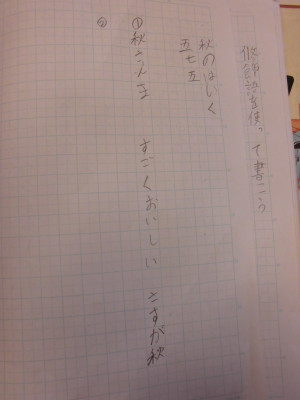 修飾語を使って書こう
秋のはいく
五七五
①秋さんま すごくおいしい さすが秋
②